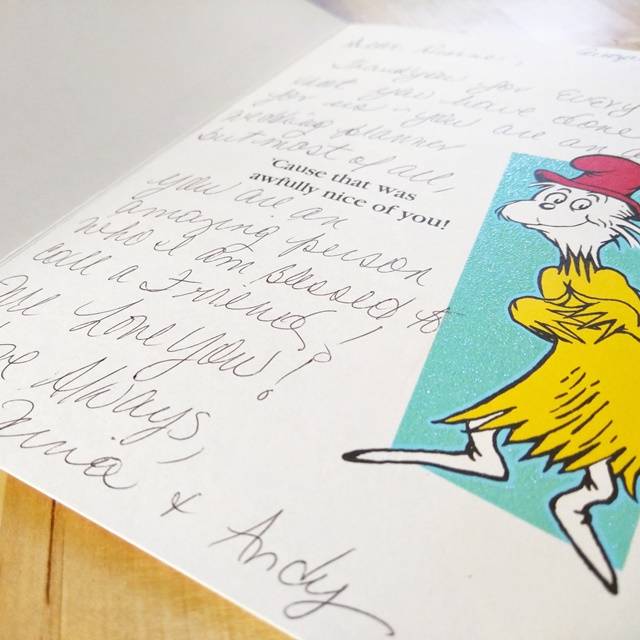 Thankyou for every
that you have done
for us. You are an
wedding planner
but most of all,
'Cause that was
awfully nice of you!
you are an
amazing person
who I am blessed to
call a Friend!
We Love you!
Always,
& Andy